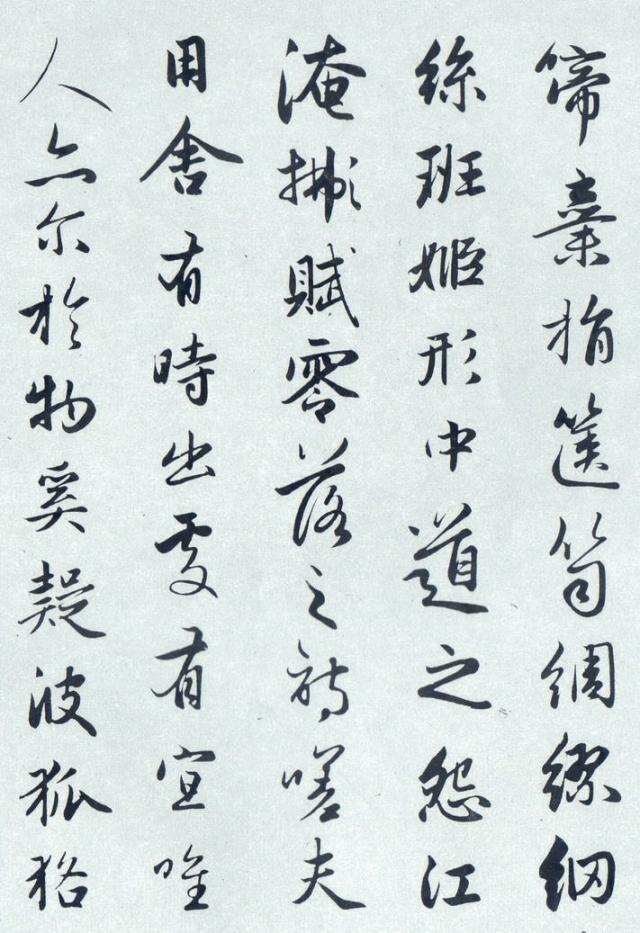 啼棄捐篋笥綢繆網
絲班姬形中道之怨江
淹賦零落之詩嗟夫
用舍有時出處有宜唯
人亦尔於物奚疑彼狐狢